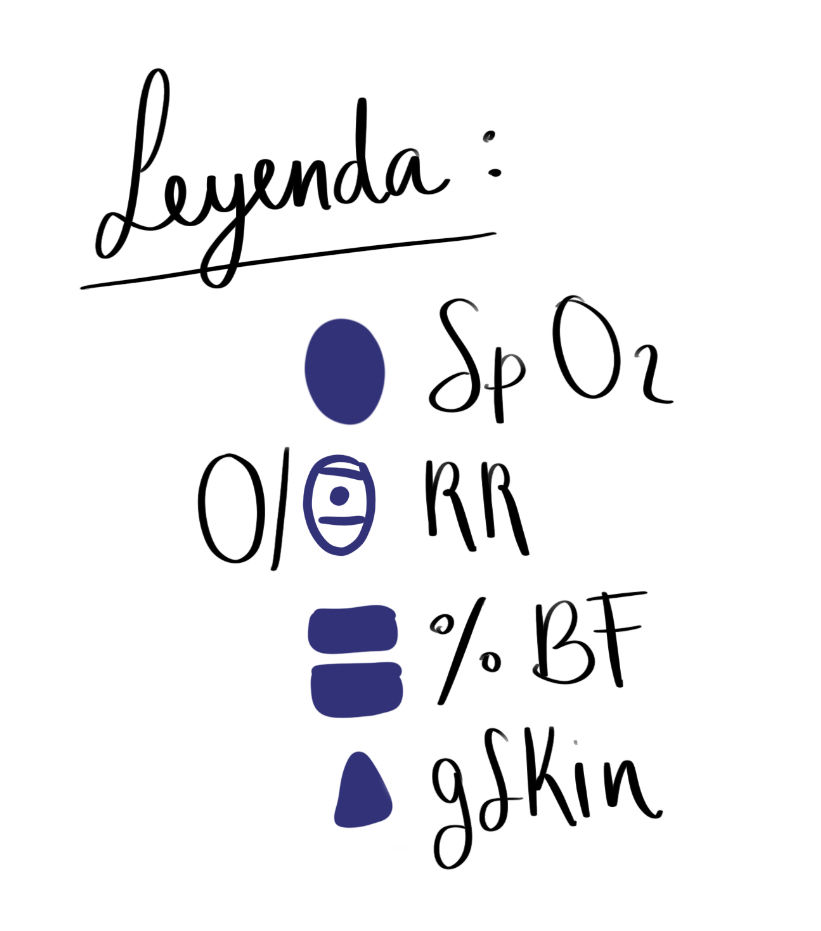 Leyenda :
SpO₂
O/ RR
% BF
gSKin